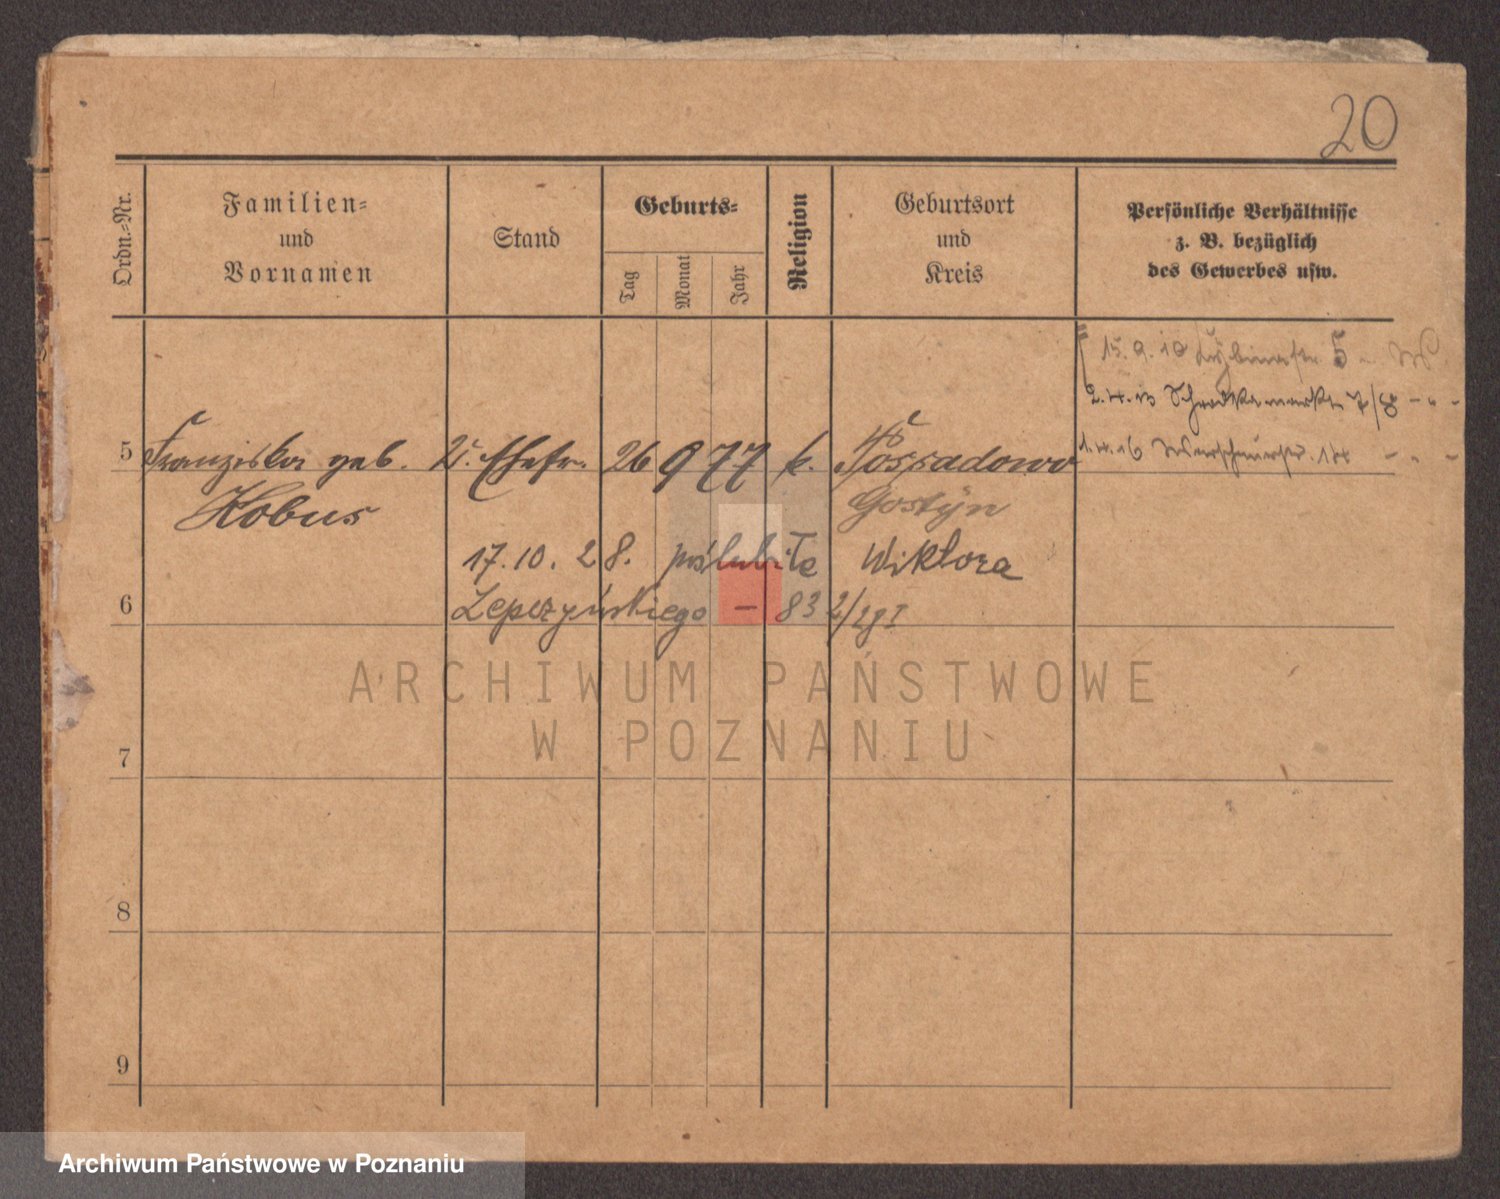 20
Ordn.-Nr.
Familien-
und
Vornamen
Stand
Geburts-
Tag
Monat
Jahr
Religion
Geburtsort
und
Kreis
Persönliche Verhältnisse
z. B. bezüglich
des Gewerbes usw.
15.9.10 5
2.4.13 Schrodkamarkt 7/8 - " -
1.4.16 14 - " -
5 Franziska geb. 2. Ehefr. 26 9 77 k.
Kobus Gostyn
17.10.28. poślubiła Wiktora
6 Lepczyńskiego - 83
ARCHIWUM PAŃSTWOWE
W POZNANIU
7
8
9
Archiwum Państwowe w Poznaniu